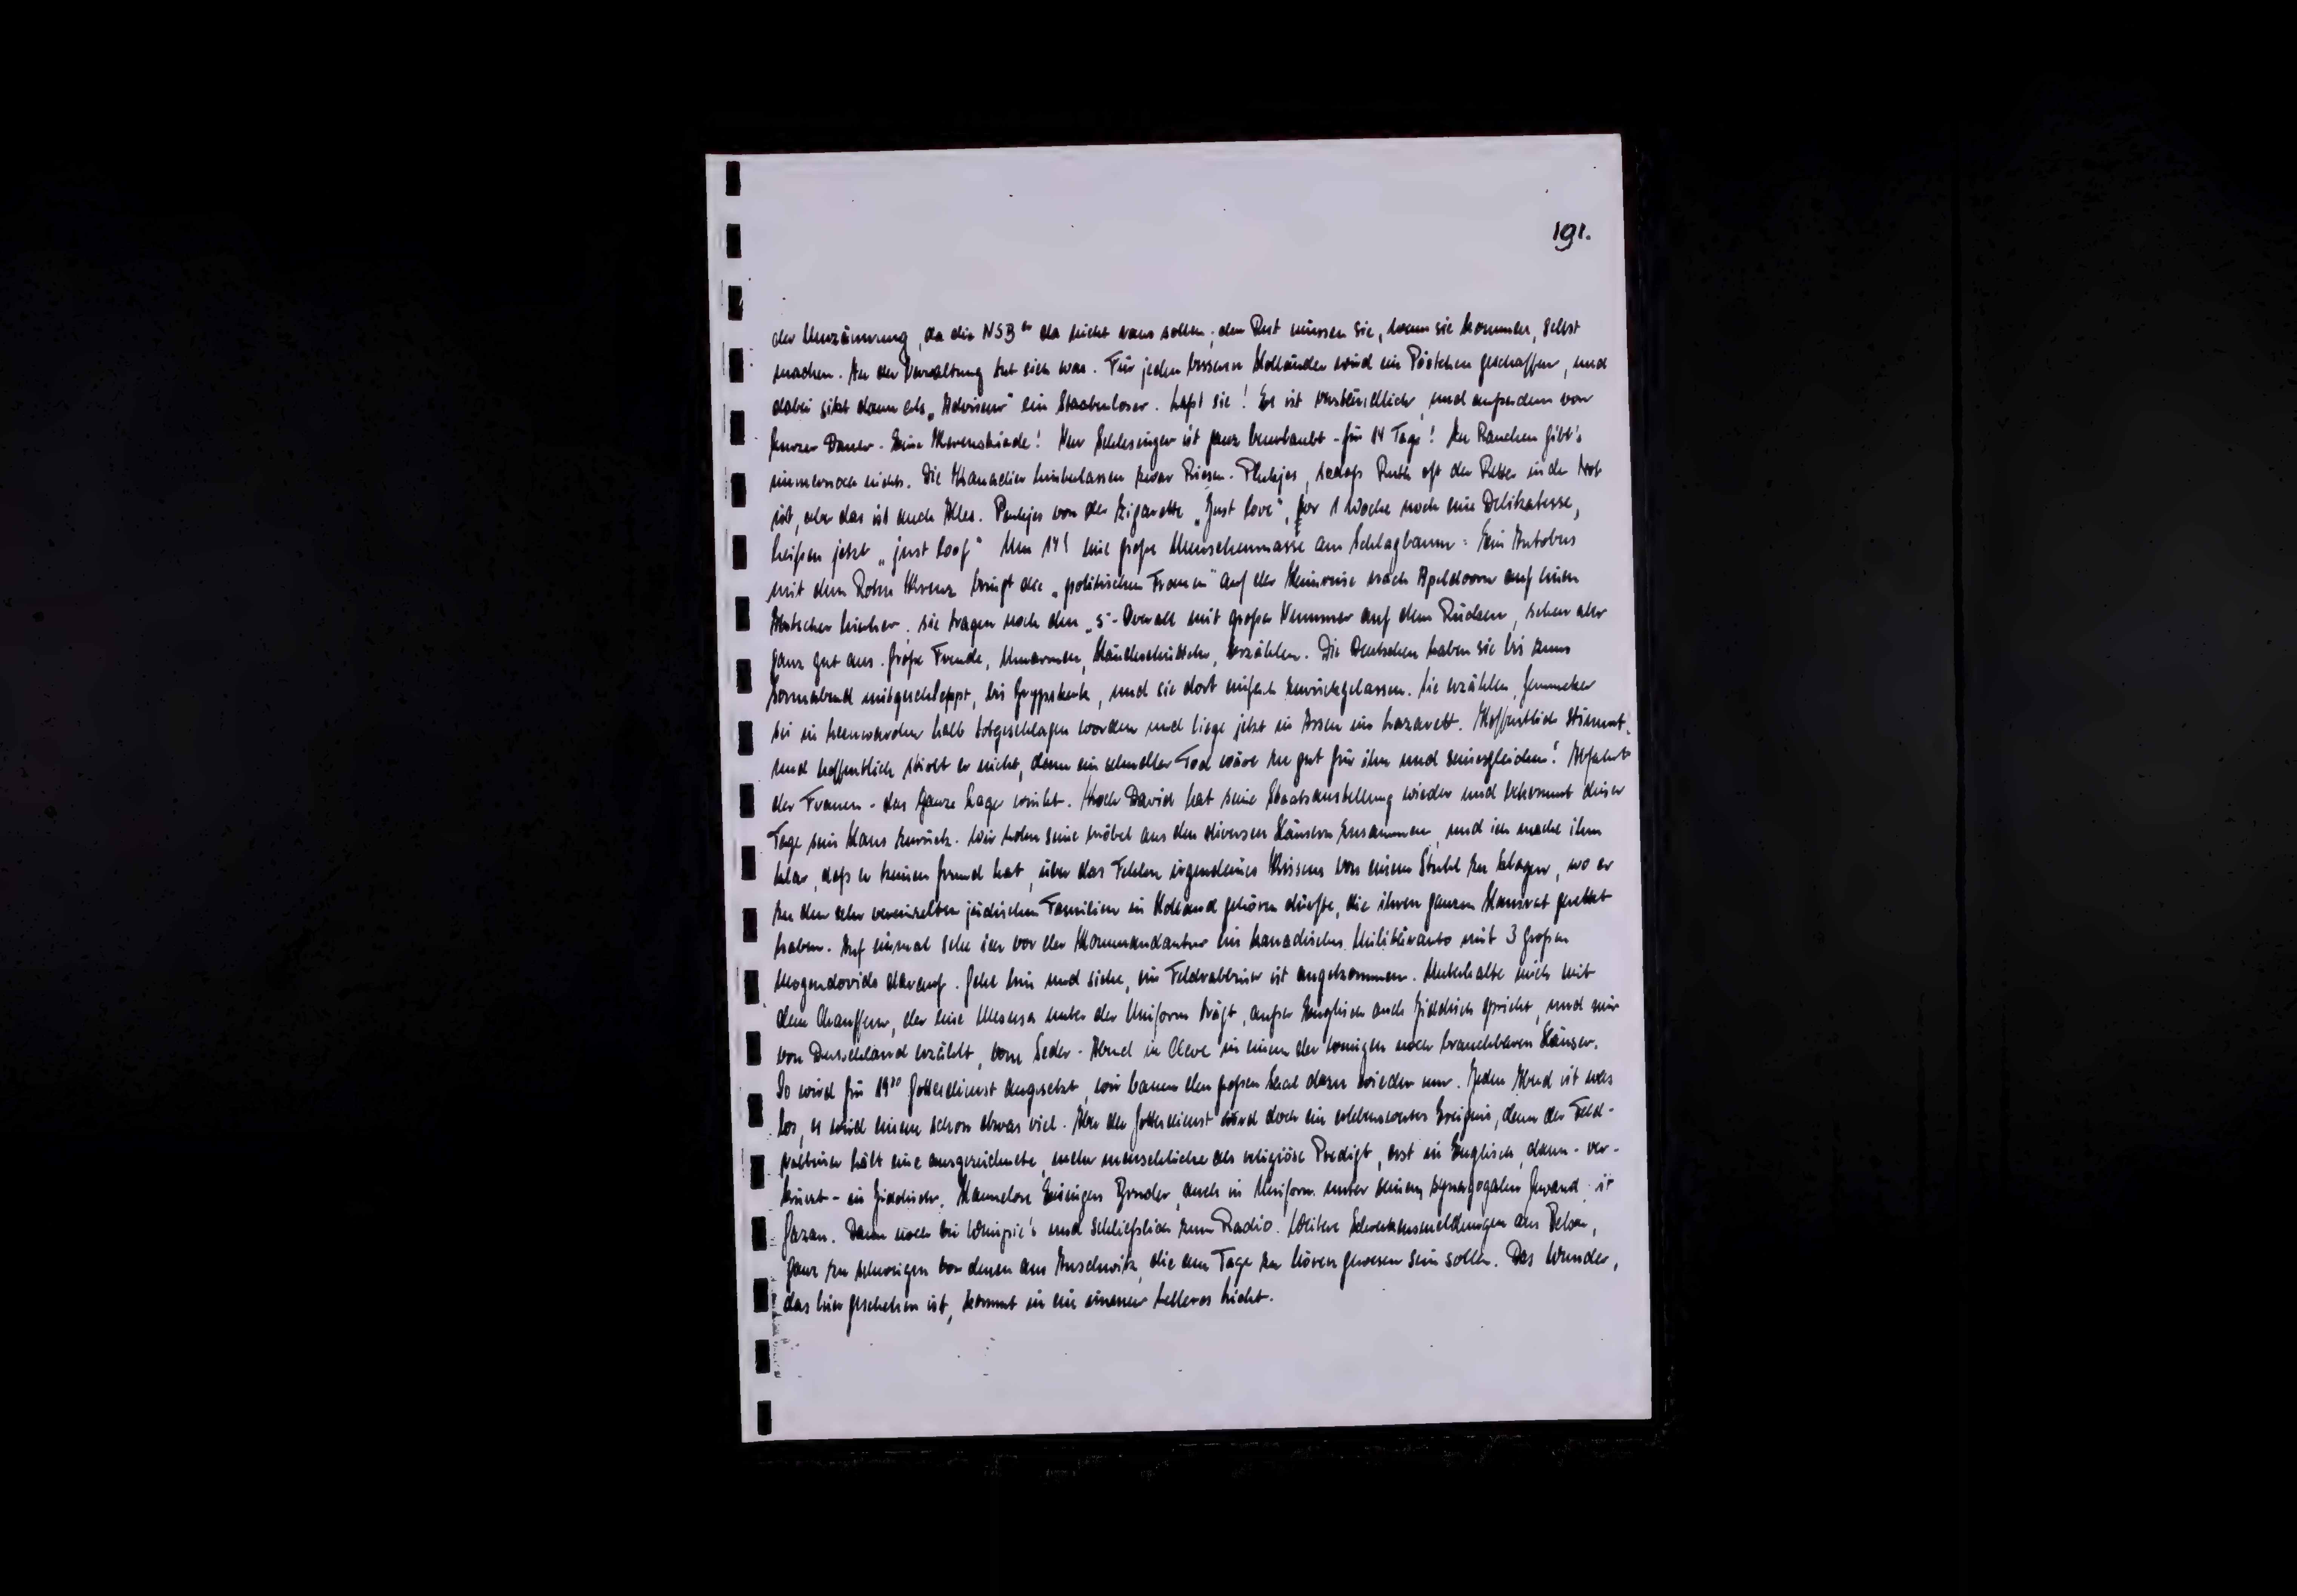 191.
der Umzäunung, da die NSB er da nicht raus sollen; den Rest müssen sie, wenn sie kommen, selbst
machen. An der Verwaltung tut sich was. Für jeden besseren Holländer wird ein Pöstchen geschaffen, und
dabei sitzt dann als „Adviseur" ein Staatenloser. Laßt sie! Es ist verständlich, und außerdem von
kurzer Dauer. Eine Kerenskiade! Herr Schlesinger ist ganz beurlaubt - für 14 Tage! Zu Rauchen gibt's
immernoch nichts. Die Kanadier hinterlassen zwar Riesen-Peukjes, sodaß Ruth oft der Retter in der Not
ist, aber das ist auch Alles. Peukjes von der Zigarette „Just love", vor 1 Woche noch eine Delikatesse,
heißen jetzt „just loof" Um 14h eine große Menschenmasse am Schlagbaum: Ein Autobus
mit dem Roten Kreuz bringt die „politischen Frauen" auf der Heimreise nach Apeldoorn auf einen
Abstecher hierher; sie tragen noch den „S"-Overall mit großer Nummer auf dem Rücken, sehen aber
ganz gut aus. Große Freude, Umarmen, Händeschütteln, Erzählen. Die Deutschen haben sie bis zum
Sonnabend mitgeschleppt, bis Grypskerk, und sie dort einfach zurückgelassen. Sie erzählen, Gemmeker
sei in Leeuwarden halb totgeschlagen worden und liege jetzt in Assen im Lazarett. Hoffentlich stimmt's
und hoffentlich stirbt er nicht, denn ein schneller Tod wäre zu gut für ihn und seinesgleichen! Abfahrt
der Frauen - das ganze Lager winkt. Koch David hat seine Staatsanstellung wieder und bekommt dieser
Tage sein Haus zurück. Wir holen seine Möbel aus den diversen Häusern zusammen, und ich mache ihm
klar, daß er keinen Grund hat, über das Fehlen irgendeines Kissens von einem Stuhl zu klagen, wo er
zu den sehr vereinzelten jüdischen Familien in Holland gehören dürfte, die ihren ganzen Hausrat gerettet
haben. Auf einmal sehe ich vor der Kommandantur ein kanadisches Militärauto mit 3 großen
Mogendovids darauf. Gehe hin und siehe, ein Feldrabbiner ist angekommen. Unterhalte mich mit
dem Chauffeur, der eine Mesusa unter der Uniform trägt, außer Englisch auch Jiddisch spricht, und mir
von Deutschland erzählt, vom Seder-Abend in Cleve in einem der wenigen noch brauchbaren Häuser.
Es wird für 19³⁰ Gottesdienst angesetzt, wir bauen den großen Saal dazu wieder um. Jeden Abend ist was
los, es wird einem schon etwas viel. Aber der Gottesdienst wird doch ein erlebenswertes Ereignis, denn der Feld-
rabbiner hält eine ausgezeichnete, mehr menschliche als religiöse Predigt, erst in Englisch, dann - ver-
kürzt - in Jiddisch. Hannelore Eisingers Bruder, auch in Uniform unter seinem synagogalen Gewand, ist
Gazan. Dann noch bei Wimpie's und schließlich zum Radio. Weitere Schreckensmeldungen aus Belsen,
ganz zu schweigen von denen aus Auschwitz, die am Tage zu hören gewesen sein sollen. Das Wunder,
das hier geschehen ist, kommt in ein immer helleres Licht.